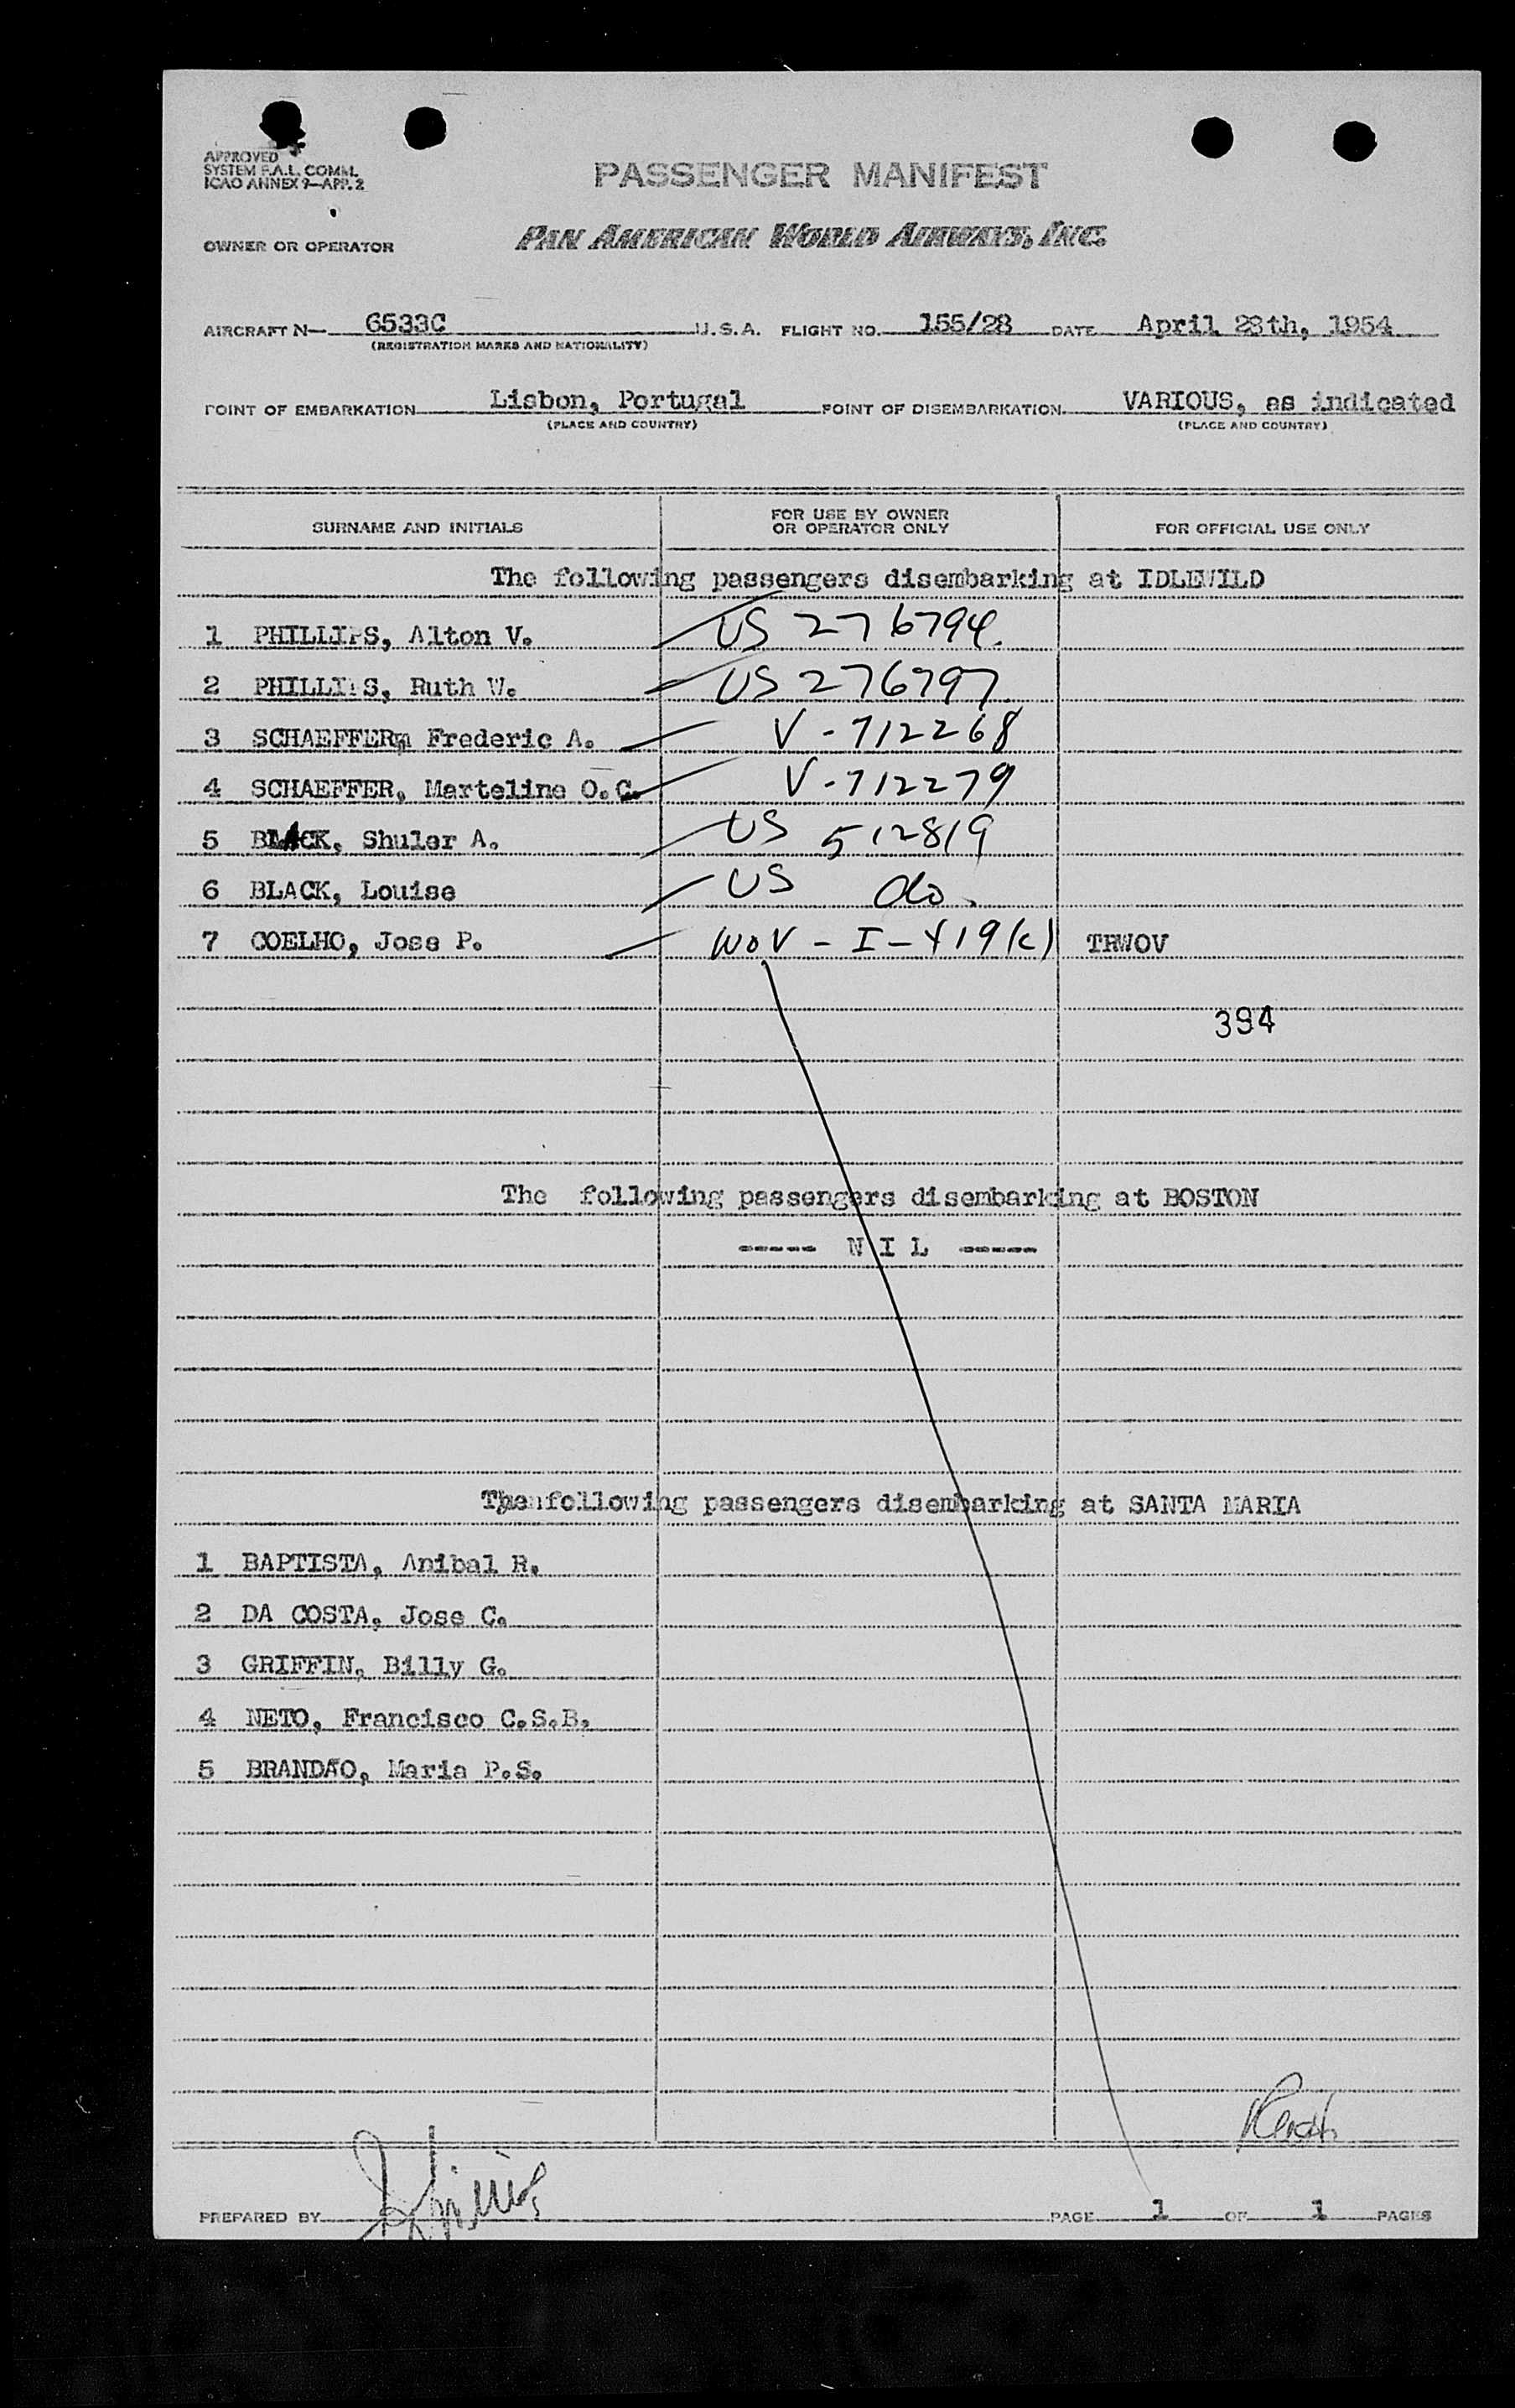 APPROVED
SYSTEM F.A.L. COMM.
ICAO ANNEX 9—APP. 2
PASSENGER MANIFEST
OWNER OR OPERATOR PAN AMERICAN WORLD AIRWAYS, INC.
AIRCRAFT N— 6533C U.S.A. FLIGHT NO. 155/28 DATE April 28th, 1954
(REGISTRATION MARKS AND NATIONALITY)
POINT OF EMBARKATION Lisbon, Portugal POINT OF DISEMBARKATION VARIOUS, as indicated
(PLACE AND COUNTRY) (PLACE AND COUNTRY)
SURNAME AND INITIALS FOR USE BY OWNER OR OPERATOR ONLY FOR OFFICIAL USE ONLY
The following passengers disembarking at IDLEWILD
1 PHILLIPS, Alton V. US 276794
2 PHILLIPS, Ruth W. US 276797
3 SCHAEFFER, Frederic A. V-712268
4 SCHAEFFER, Marteline O.C. V-712279
5 BLACK, Shuler A. US 512819
6 BLACK, Louise US do.
7 COELHO, Jose P. WOV-I-419(c) TRWOV
394
The following passengers disembarking at BOSTON
----- N I L -----
The following passengers disembarking at SANTA MARIA
1 BAPTISTA, Anibal R.
2 DA COSTA, Jose C.
3 GRIFFIN, Billy G.
4 NETO, Francisco C.S.B.
5 BRANDÃO, Maria P.S.
PREPARED BY PAGE 1 OF 1 PAGES